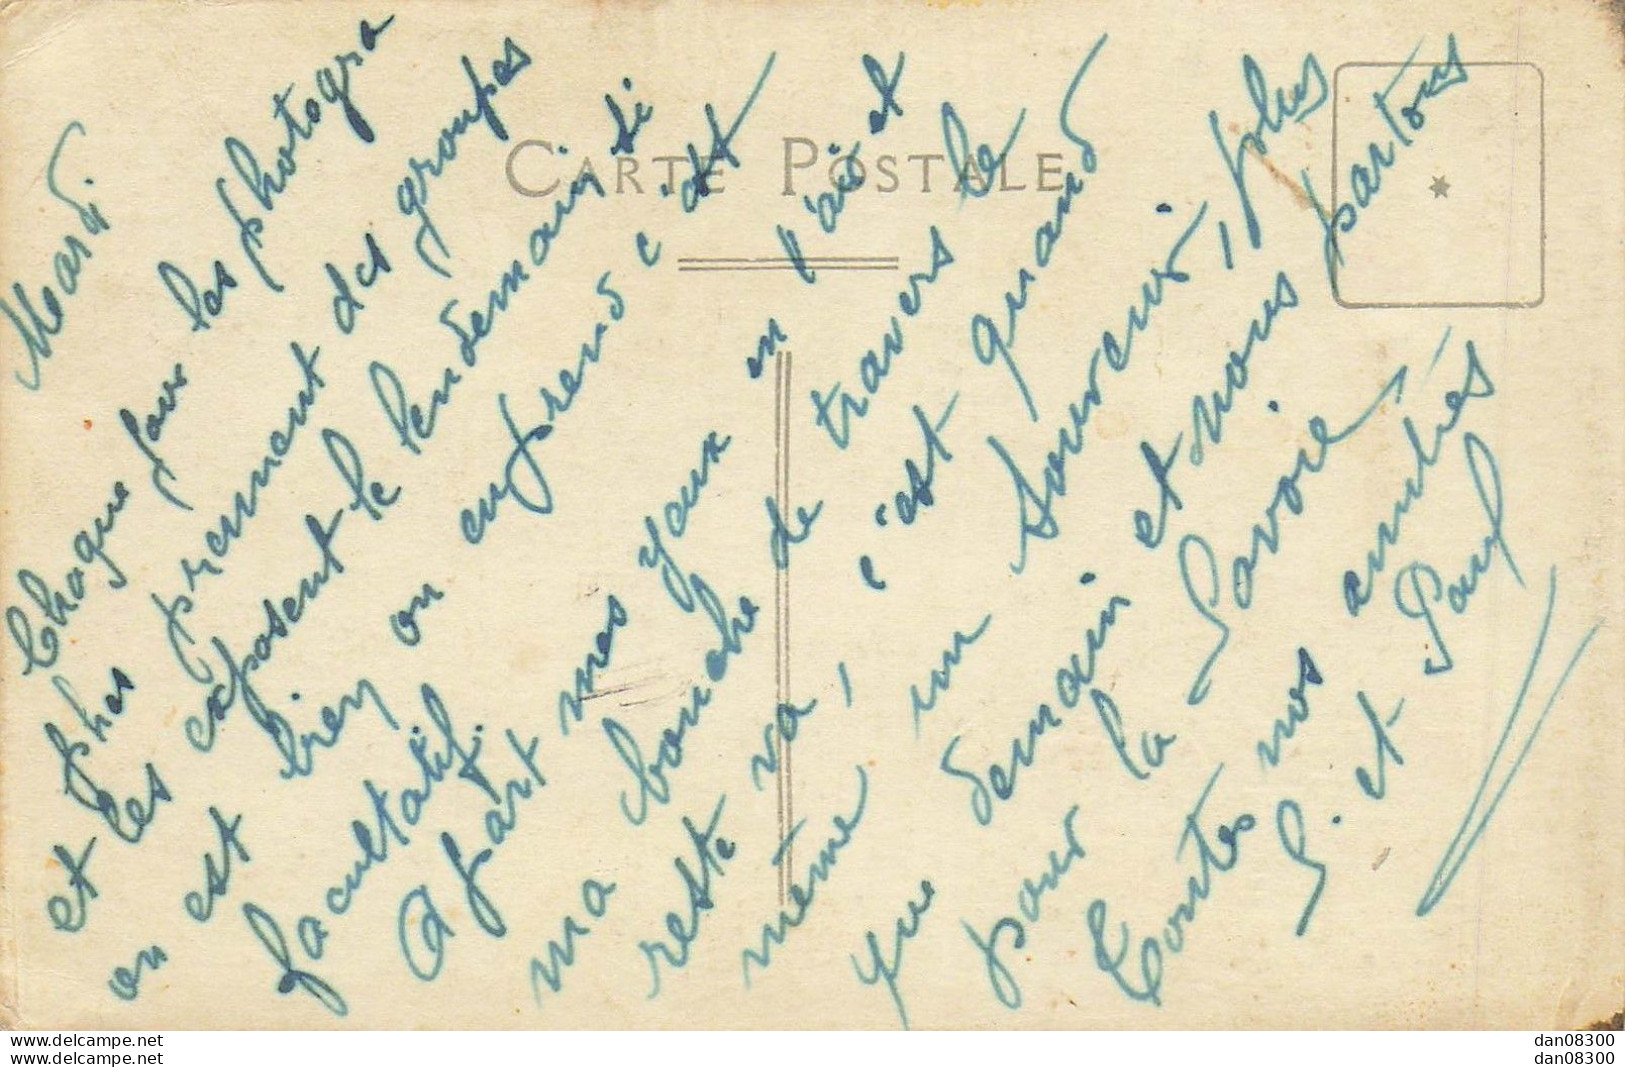 CARTE POSTALE
Mardi
Chaque jour les photogra
phes prennent des groupes
et les exposent le lendemain si
on est bien on en prend c'est
facultatif.
A part mes yeux en l'air et
ma bouche de travers le
reste va, c'est quand
même un souvenir, plus
que demain et nous partons
pour la Savoie
Toutes nos amitiés
S. et Paul
www.delcampe.net
dan08300
www.delcampe.net
dan08300